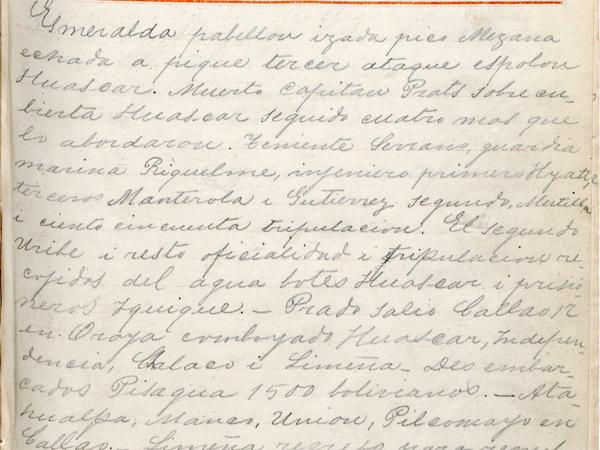 Esmeralda pabellon izada pico Mezana
echada a pique tercer ataque espolon
Huascar. Muerto Capitan Prats sobre cu-
bierta Huascar seguido cuatro mas que
lo abordaron. Teniente Serrano, guardia
marina Riquelme, injeniero primero Hyatt,
terceros Manterola i Gutierrez segundo, Mutilla
i ciento cincuenta tripulacion. El segundo
Uribe i resto oficialidad i tripulacion re-
cojidos del agua botes Huascar i prisio
neros Iquique. — Prado salio Callao 12
en Oroya comboyado Huascar, Indepen-
dencia, Chalaco i Limeña — Desembar-
cados Pisagua 1500 bolivianos. — Ata
hualpa, Manco, Union, Pilcomayo en
Callao. — Limeña regreso para